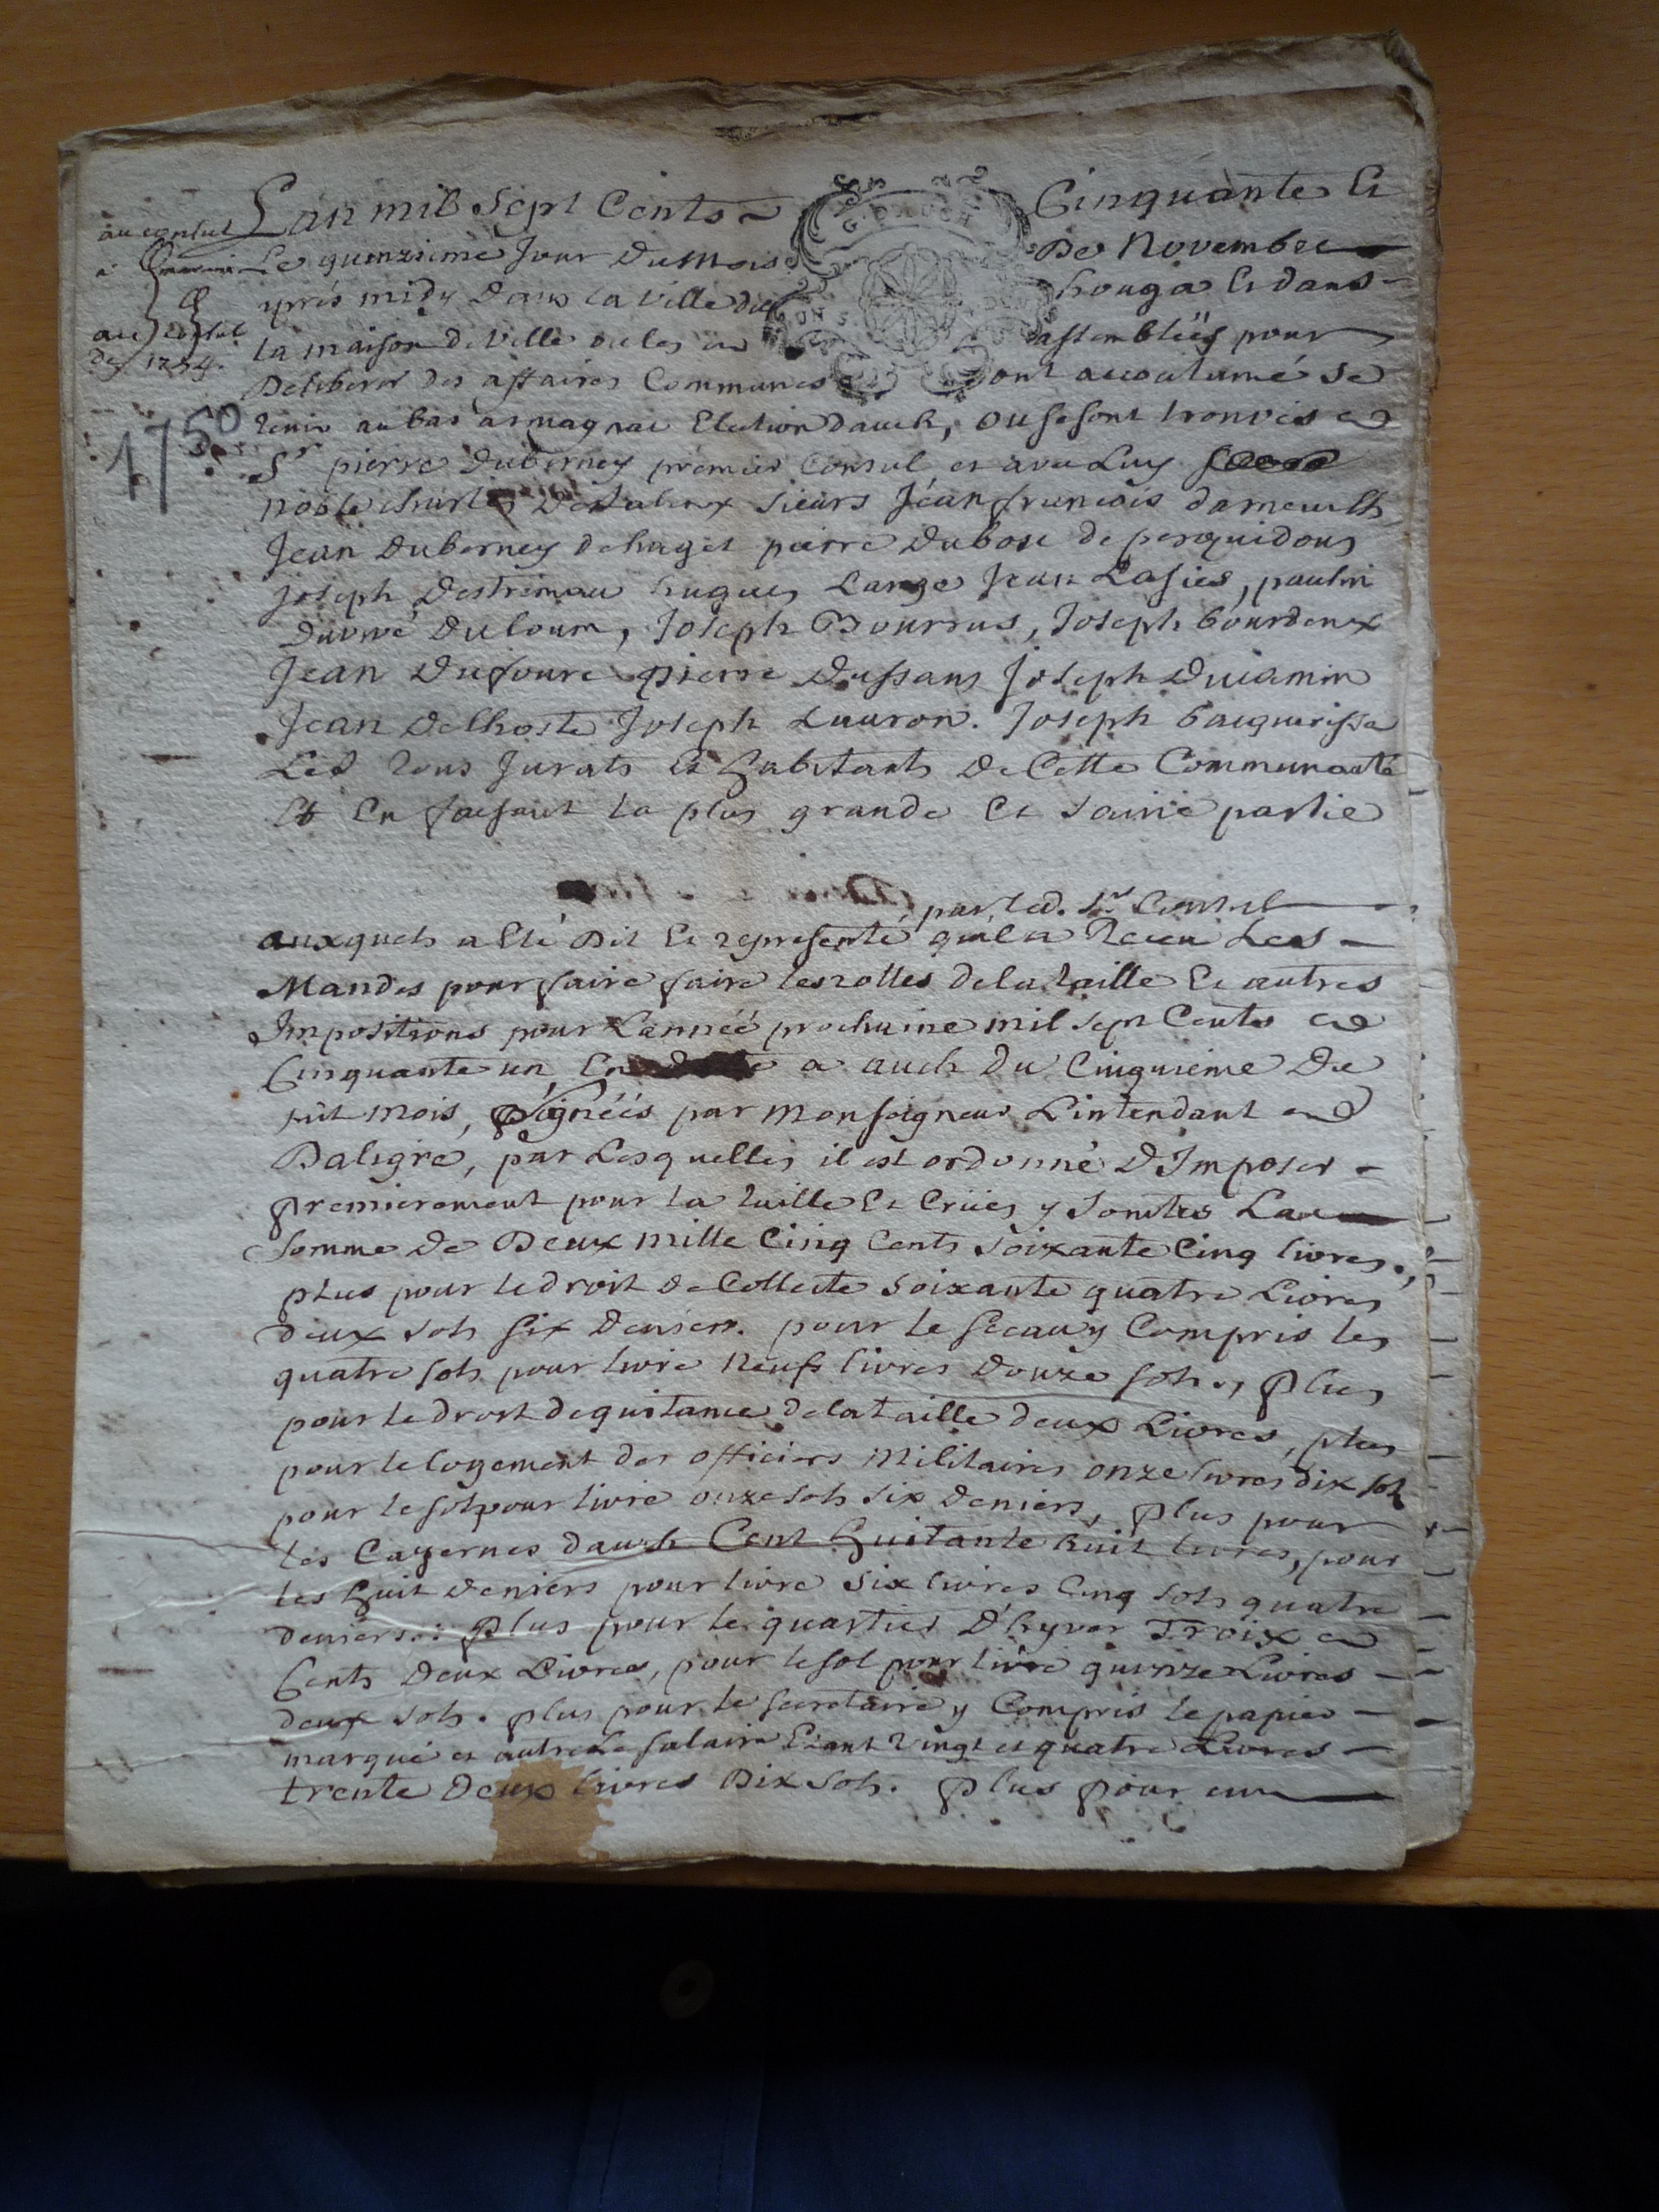 Lan mil Sept Cents Cinquante Et
au consul
Le quinzieme Jour Du Mois De Novembre
aprés midy Dans la Ville du houga Et dans
au consul
de 1754.
la maison De Ville ou les assemblées pour
Deliberer des affaires Communes ont accoutumé se
1750
tenir au bas armagnac Election dauch, ou se sont trouvés
Sr pierre Duberney premier Consul et avec Luy
noble charles sieurs Jean francois
Jean Duberney de haget pierre Dubosc de perquidous
Joseph Destrimau hugues Large Jean Lasies, paulin
Duvivé Duloum, Joseph Bourrus, Joseph bourdeux
Jean Dufourc pierre Dussans Joseph
Jean Delhoste Joseph Lauron. Joseph
Les tous Jurats Et habitants De Cette Communauté
Et En faisant la plus grande Et saine partie
par led. Sr Consul
auxquels a Eté Dit Et representé quil a Receu Les
Mandes pour faire faire les rolles de la taille Et autres
Impositions pour Lannéé prochaine mil sept Cents
Cinquante un, En a auch du Cinquieme Du
sit mois, signéés par monseigneur Lintendant
Daligre, par Lesquelles il est ordonné DImposer
premierement pour la taille Et Crües y Jointes La
somme de Deux mille Cinq Cents soixante Cinq livres.,
plus pour le droit de Collecte soixante quatre Livres
deux sols six deniers. pour le sceau y Compris les
quatre sols pour livre neuf livres Douze sols., plus
pour le droit de quitance de la taille deux Livres, plus
pour le logement des officiers Militaires onze livres dix sols
pour le sol pour livre onze sols six deniers, plus pour
les Cazernes dauch Cent huitante huit livres, pour
les huit deniers pour livre six livres Cinq sols quatre
deniers.: plus pour le quartier D'hyver Troix
Cents Deux Livres, pour le sol pour livre quinze Livres
deux sols. plus pour le secretaire y Compris le papier
marqué et autre Le salaire Etant vingt et quatre Livres
trente Deux livres Dix sols. plus pour un